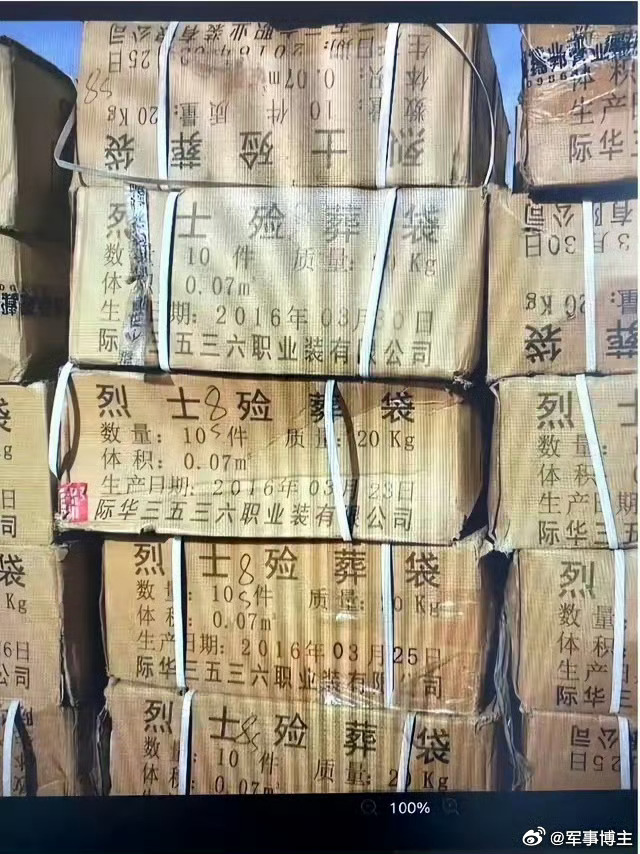 烈士殓葬袋
数量: 10件 质量: 20Kg
体积: 0.07m³
8S
烈士殓葬袋
数量: 10件 质量: 20Kg
体积: 0.07m³
生产日期: 2016年03月30日
际华三五三六职业装有限公司
烈士殓葬袋
8S
数量: 10件 质量: 20Kg
体积: 0.07m³
生产日期: 2016年03月23日
际华三五三六职业装有限公司
烈士殓葬袋
8S
数量: 10件 质量: 20Kg
体积: 0.07m³
生产日期: 2016年03月25日
际华三五三六职业装有限公司
烈士殓葬袋
8S
数量: 10件 质量: 20Kg
体积: 0.07m³
体积
生产
际华
有限公司
3月30日
20Kg
葬袋
烈士
数量:
体积:
生产日期
际华三五三
烈
数量
体积
生产
际华三
公司
25日
袋
Kg
公司
袋
Kg
6日
公司
100%
@军事博主